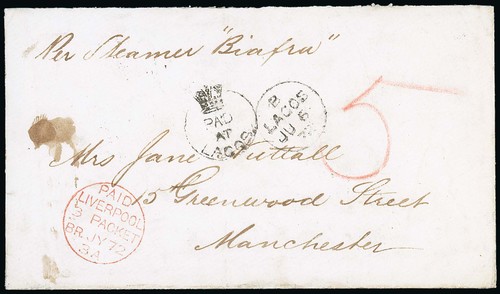 Per Steamer "Biafra"
PAID
AT
LAGOS
LAGOS
JU
5
Mrs Jane Tuttall
15 Greenwood Street
Manchester
PAID
LIVERPOOL
3 PACKET
BR. JY 72
3A